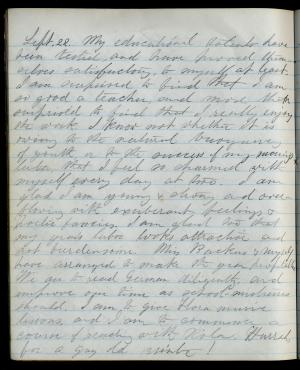 Sept. 22. My educational talents have
been tested and have proved them-
selves satisfactory to myself at least.
I am surprised to find that I am
so good a teacher, and more than
surprised to find that I really enjoy
the work. I know not whether it is
owing to the natural buoyancy
of youth or to the success of my
that I feel so charmed with
myself every day at two. I am
glad I am young & strong and over-
flowing with exuberant feelings &
poetic fancies. I am glad too that
my years labor looks attractive and
not burdensome. Miss Backus & myself
have arranged to make the year profitable
We are to read German diligently and
improve our time as school-mistresses
should. I am to give Flora music
lessons, and I am to commence a
course of reading with Nola. Hurrah
for a gay old winter!